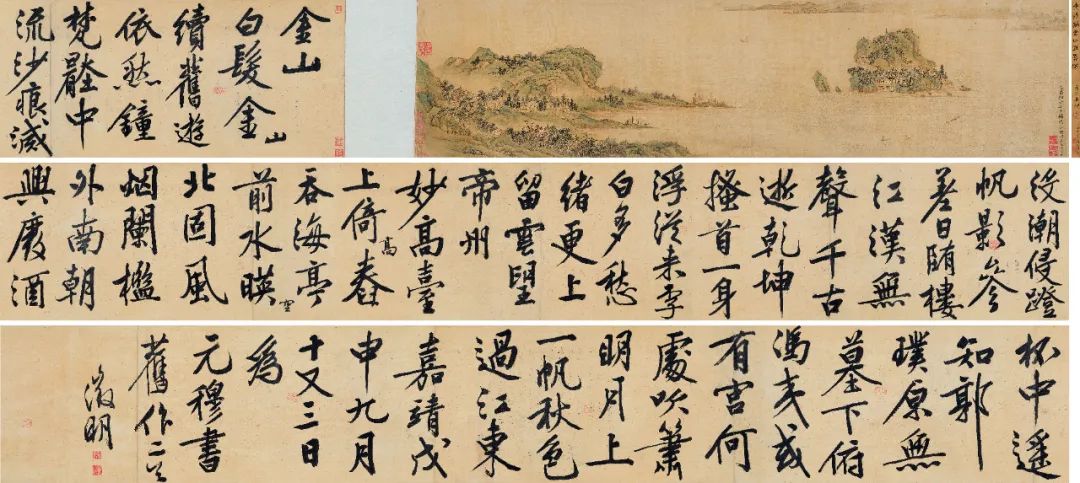 金山
白髮金山
續舊遊
依然鐘
梵壓中
流沙痕減
沒潮侵蹬
帆影參
差日墮樓
江漢無
聲千古
逝乾坤
搔首一身
浮從來李
白多愁
緒更上
留雲望
帝州
妙高臺
上倚高舂
吞海亭
前水映空
北固風
烟闌檻
外南朝
興廢酒
杯中遙
知郭
璞原無
墓下俯
馮夷或
有宮何
處吹簫
明月上
一帆秋色
過江東
嘉靖戊
申九月
十又三日
為
元穆書
舊作二首
徵明